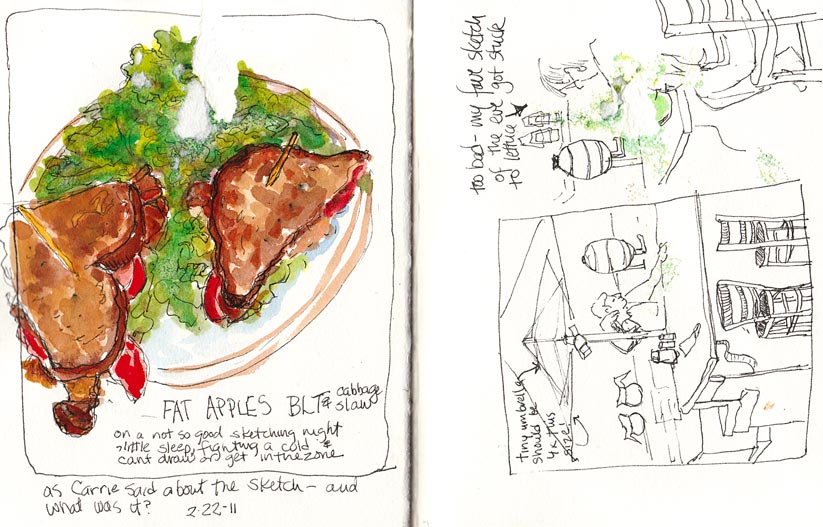 FAT APPLES BLT & cabbage slaw
on a not so good sketching night
>little sleep, fighting a cold &
can't draw or get in the zone
as Carrie said about the sketch – and
what was it? 2.22-11
too bad – my fave sketch
of the eve got stuck
to lettuce!
tiny umbrella
should be
4x this
size!